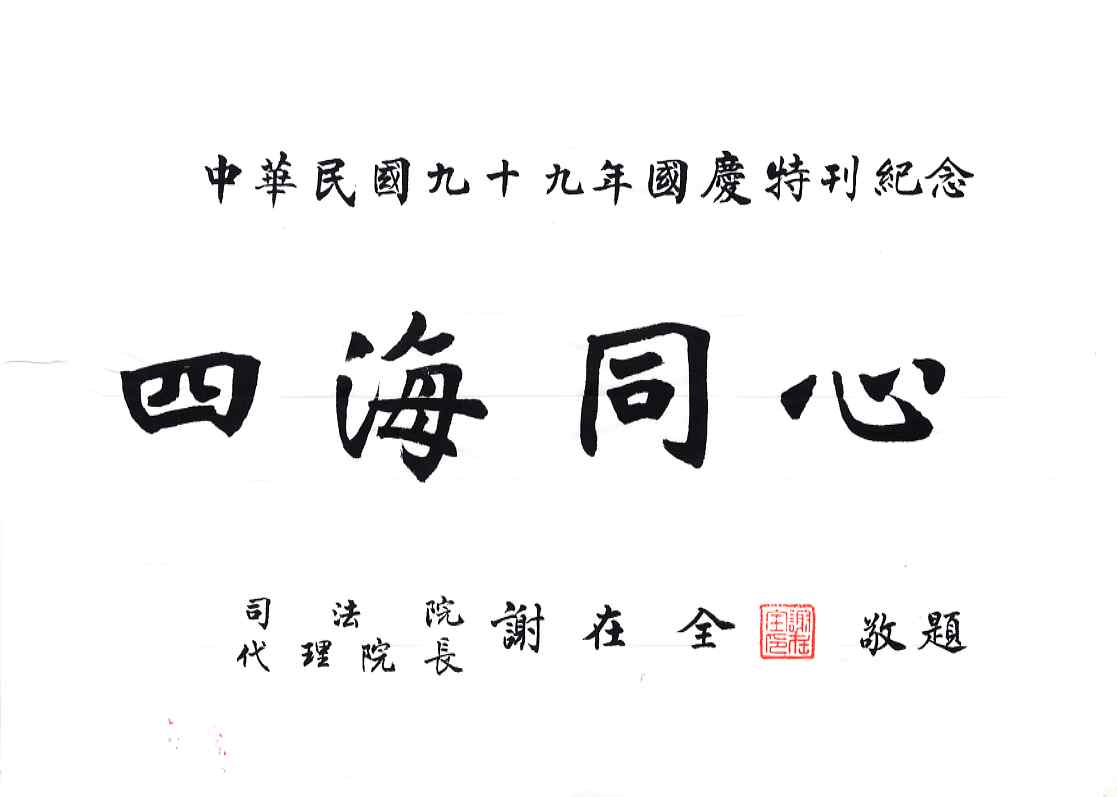 中華民國九十九年國慶特刊紀念
四海同心
司法院
代理院長
謝在全 敬題
謝在全印